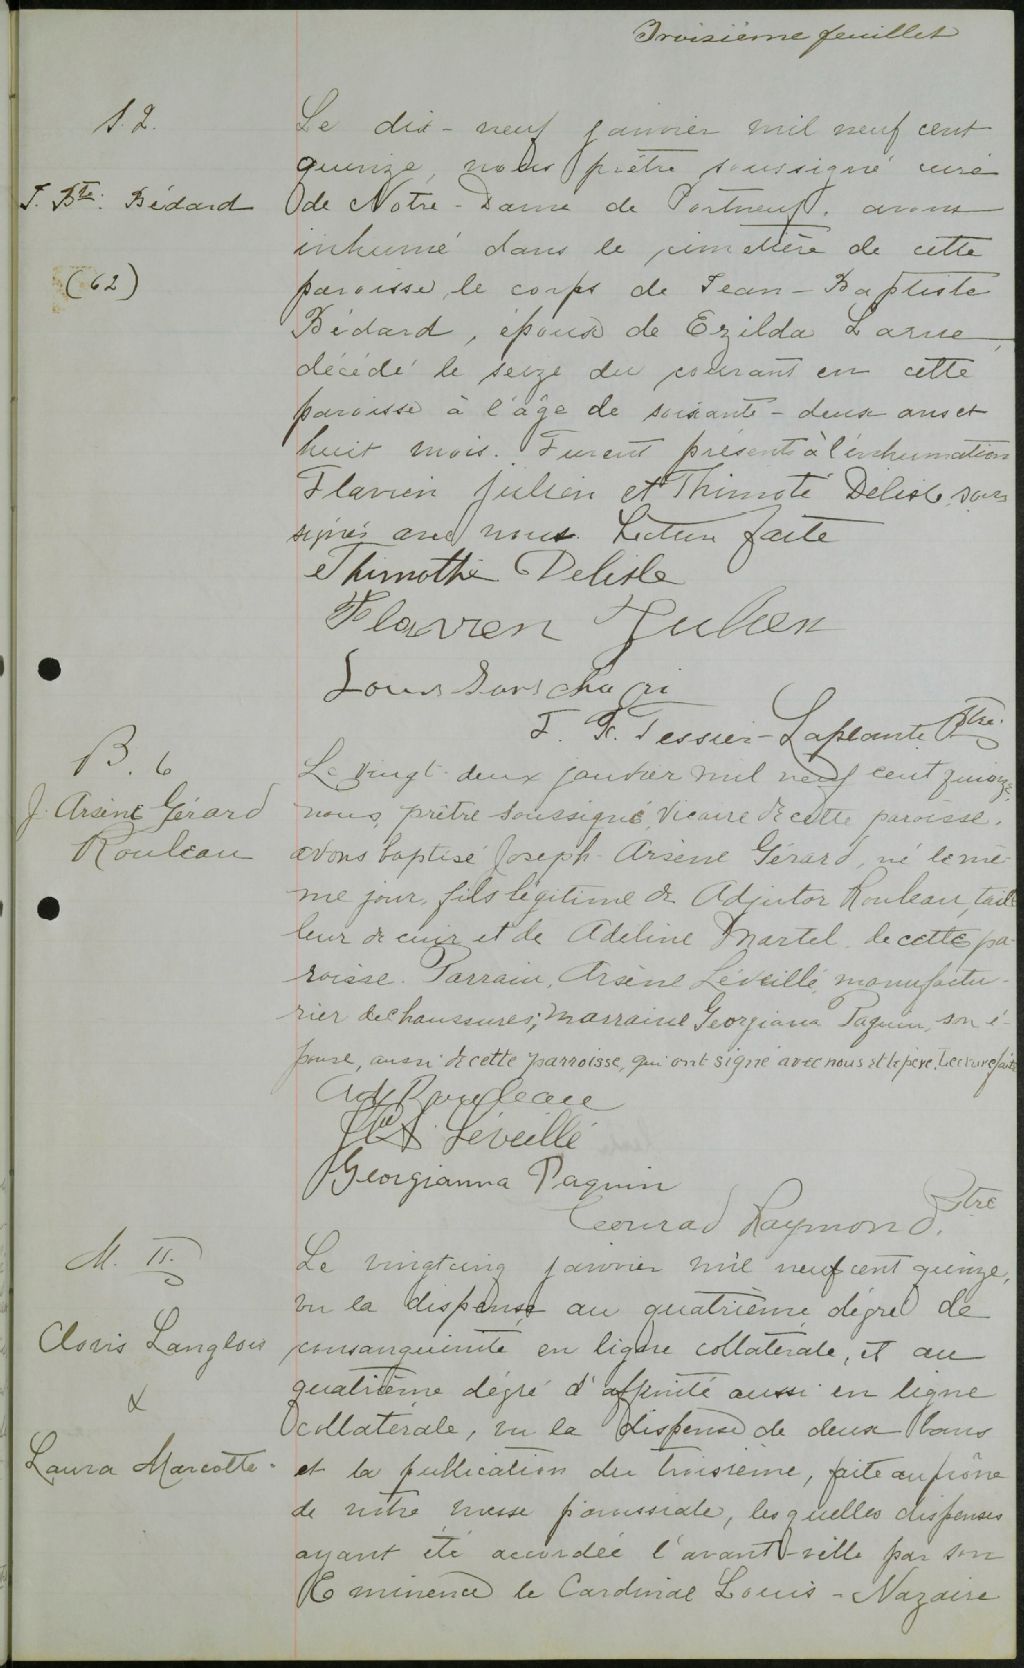 Troisième feuillet
S. 2.
J. Bte. Bédard
(62)
Le dix-neuf janvier mil neuf cent
quinze, nous prêtre soussigné curé
de Notre-Dame de Portneuf, avons
inhumé dans le cimetière de cette
paroisse, le corps de Jean-Baptiste
Bédard, époux de Ezilda Larue,
décédé le seize du courant en cette
paroisse à l'âge de soixante-deux ans et
huit mois. Furent présents à l'inhumation
Flavien Julien et Thimoté Delisle, sous
signés avec nous. Lecture faite
Thimothé Delisle
Flavien Julien
Louis
F. X. Tessier-Laplante Ptre.
B. 6
J. Arsène Gérard
Rouleau
Le vingt-deux janvier mil neuf cent quinze,
nous, prêtre soussigné, vicaire de cette paroisse,
avons baptisé Joseph-Arsène Gérard, né le mê-
me jour, fils légitime de Adjutor Rouleau, tail-
leur de cuir et de Adeline Martel, de cette pa-
roisse. Parrain, Arsène Léveillé, manufactu-
rier de chaussures; marraine Georgiana Paquin, son é-
pouse, aussi de cette parroisse, qui ont signé avec nous et le père. Lecture faite
Adj Rouleau
Léveillé
Georgianna Paquin
Conrad Raymond, Ptre
M. II.
Clovis Langlois
&
Laura Marcotte.
Le vingtcinq janvier mil neuf cent quinze,
vu la dispense au quatrième dégré de
consanguinité en ligne collatérale, et au
quatrième dégré d'affinité aussi en ligne
collatérale, vu la dispense de deux bans
et la publication du troisième, faite au prône
de notre messe paroissiale, lesquelles dispenses
ayant été accordée l'avant-veille par son
Eminence le Cardinal Louis-Nazaire